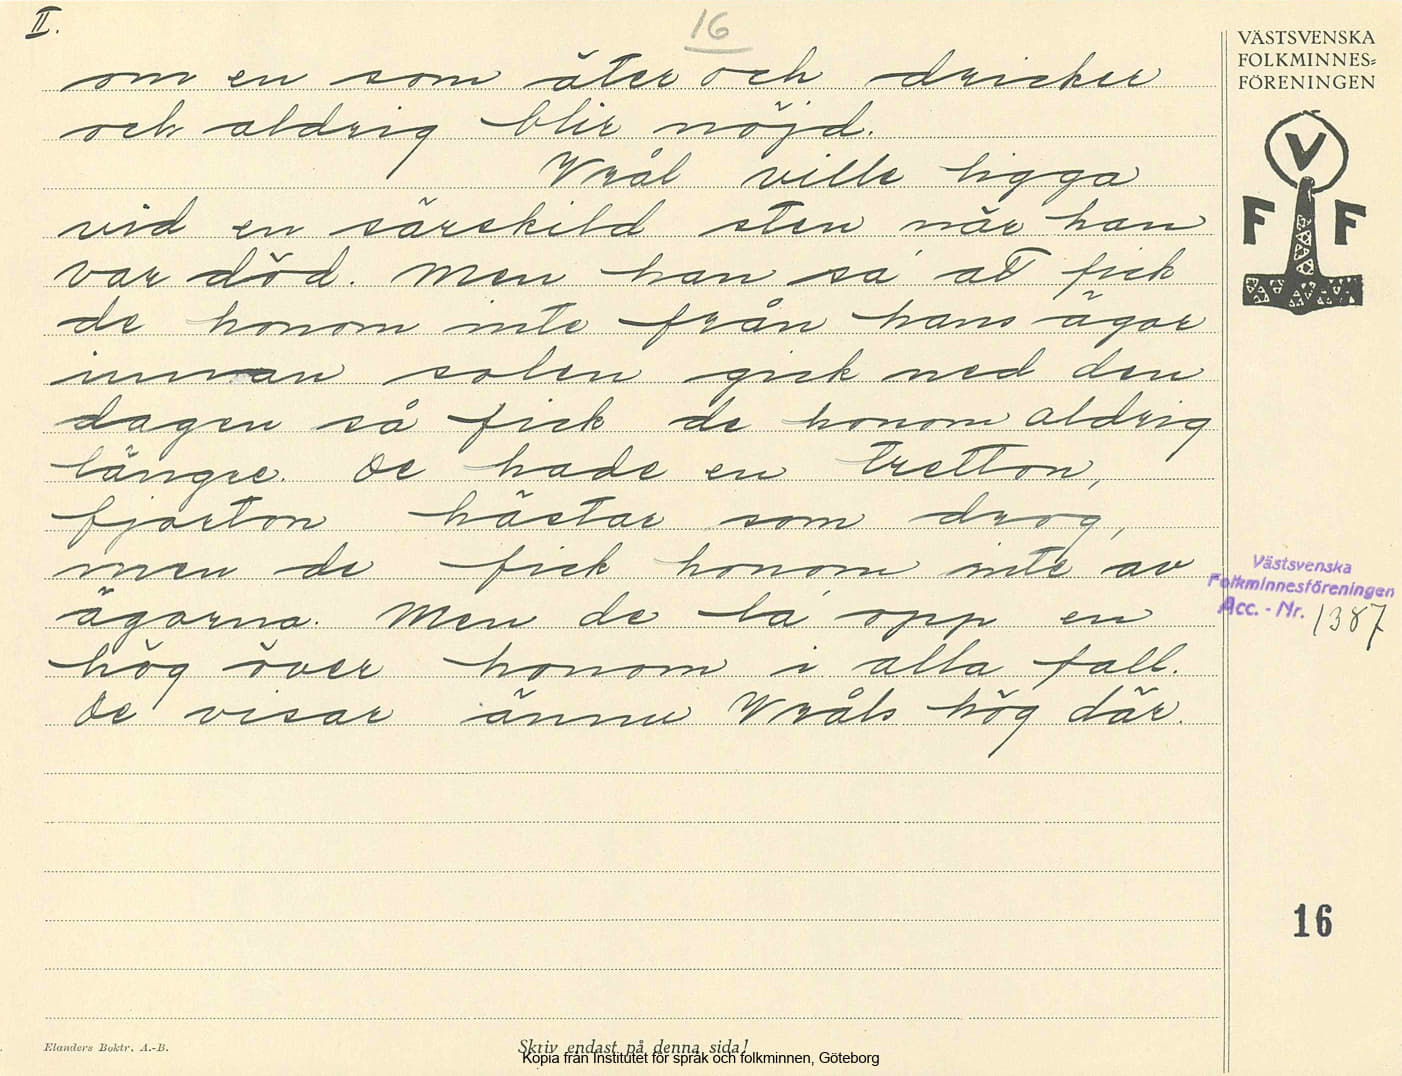 II.
16
om en som äter och dricker
och aldrig blir nöjd.
Wrål ville ligga
vid en särskild sten när han
var död. Men han sa' att fick
de honom inte från hans ägor
innan solen gick ned den
dagen så fick de honom aldrig
längre. De hade en tretton,
fjorton hästar som drog,
men de fick honom inte av
ägorna. Men de la' opp en
hög över honom i alla fall.
De visar ännu Wråls hög där.
VÄSTSVENSKA
FOLKMINNES=
FÖRENINGEN
V
F F
Västsvenska
Folkminnesföreningen
Acc. - Nr. 1387
16
Elanders Boktr. A.-B.
Skriv endast på denna sida!
Kopia från Institutet för språk och folkminnen, Göteborg